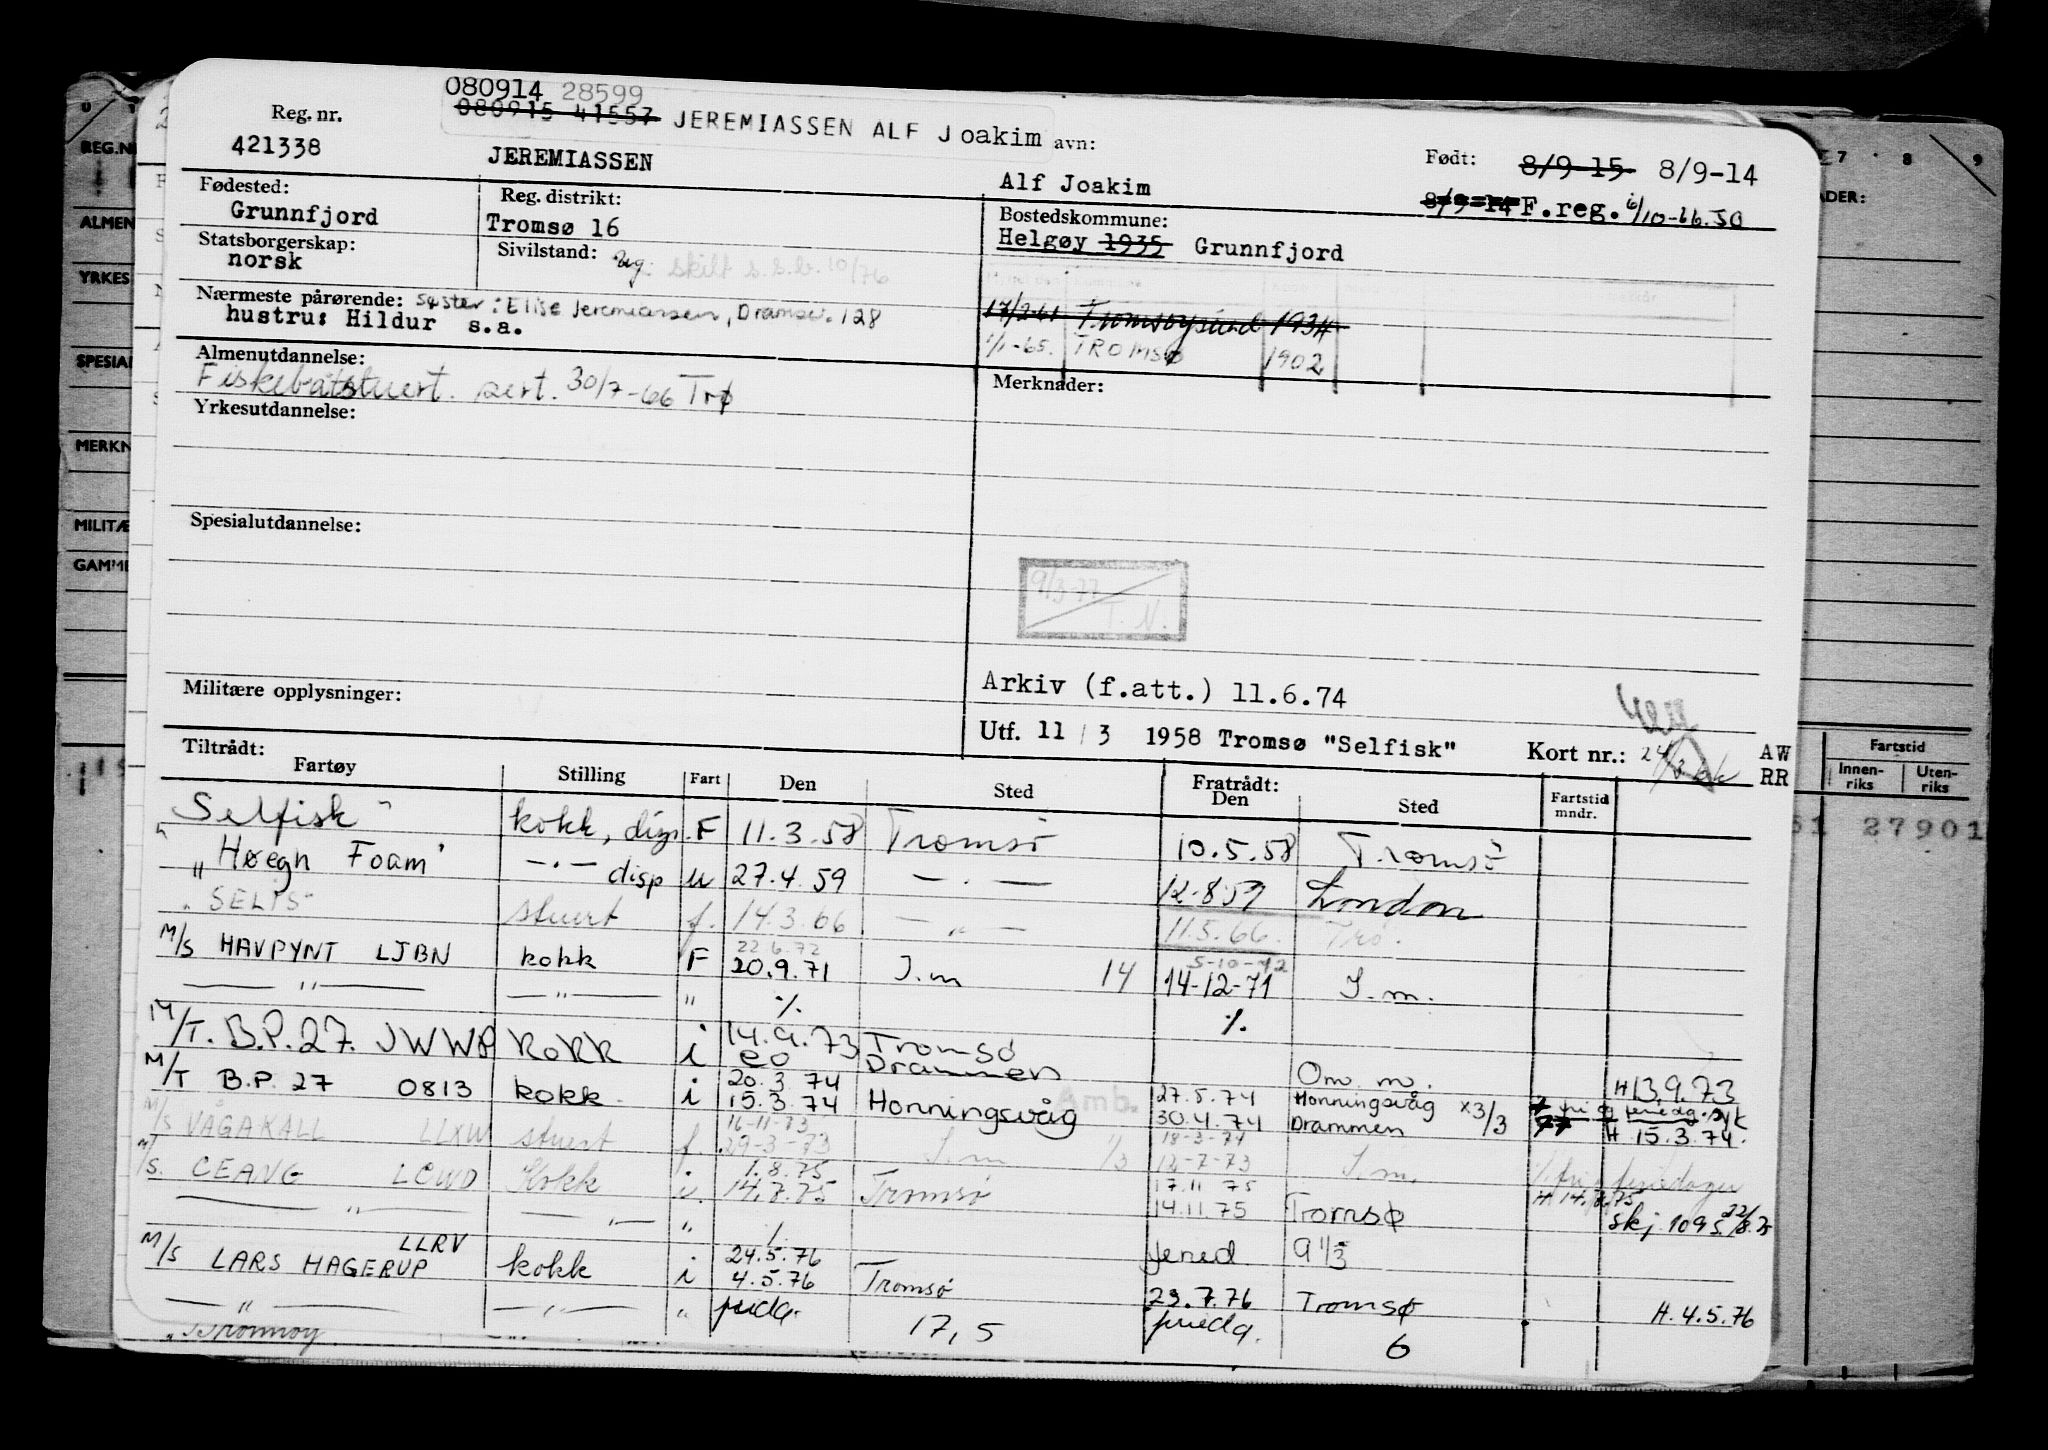 080914 28599
080915 41557 JEREMIASSEN ALF Joakim avn:
Reg. nr. 421338
JEREMIASSEN
Alf Joakim
Født: 8/9-15 8/9-14
8/9-14 F.reg. 6/10-66. SO
Fødested: Grunnfjord
Reg. distrikt: Tromsø 16
Bostedskommune: Helgøy 1935 Grunnfjord
Statsborgerskap: norsk
Sivilstand: ug. skilt s.s.b. 10/76
Nærmeste pårørende: søster: Elise Jeremiassen, Dramsv. 128
hustru: Hildur s.a.
17/2-61 Tromsøysund 1934
1/1-65. TROMSØ 1902
Almenutdannelse:
Fiskebåtstuert. sert. 30/7-66 Trø
Merknader:
Yrkesutdannelse:
Spesialutdannelse:
9/3-77 T. N.
Militære opplysninger:
Arkiv (f.att.) 11.6.74
Utf. 11 / 3 1958 Tromsø "Selfisk" Kort nr.: AW
RR
Tiltrådt: Fratrådt:
Fartøy Stilling Fart Den Sted Den Sted Fartstid mndr.
"Selfisk" kokk, disp. F 11.3.58 Tromsø 10.5.58 Tromsø
"Høegh Foam" —"— disp u 27.4.59 —"— 12.8.59 London
"SELIS" stuert f. 14.3.66 —"— 11.5.66. Trø.
22.6.72 5-10-72
M/S HAVPYNT LJBN kokk F 20.9.71 I.m 14 14-12-71 I.m.
—"— —"— " % %
M/T. B.P. 27. JWWP kokk i 14.9.73 Tromsø
i eo Drammen Om. m. H 13.9.73
20.3.74 27.5.74 Honningsvåg x3/3 + fri og feriedg. syk
M/T B.P. 27 0813 kokk. i 15.3.74 Honningsvåg 30.4.74 Drammen H 15.3.74.
Amb.
16-11-73 18-3-74
M/S VÅGAKALL LLXW stuert f. 29-3-73 I.m 1/3 12-7-73 I.m. fri feriedager
1.8.75 17.11 75 H. 14.7.75
M/S. OEANG LCWD Kokk i. 14.7.75 Tromsø 14.11.75 Tromsø skj. 1095 22/8.75
—"— —"— " %
feried. 9 1/3
LLRV 24.5.76
M/S LARS HAGERUP kokk i 4.5.76 Tromsø 29.7.76 Tromsø H. 4.5.76
—"— —"— " friedg. 17,5 friedg. 6
"Brønnøy
REG.N
ALMEN
YRKES
SPESIAL
MERKN
MILITÆ
GAMME
7 8 9
ADER:
Fartstid
Innen-riks Uten-riks
51 27901